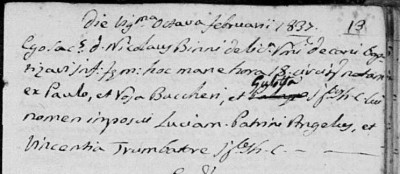 Die Vig.ma Octava februarii 1837. 13
Ego Sac. D. Nicolaus Binni de lic. Rmi Decani bap
tizavi inf. hoc mane hora 13 circ. natam
ex Paulo, et Rosa Buccheri, et Galofo j. h. c. cui
nomen imposui Luciam. Patrini Angelus, et
Vincentia Trumbatore j. h. c.